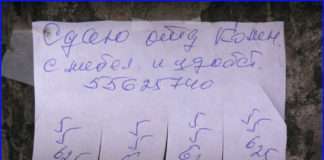 Сдаю отд комн.
с мебел. и удобст.
55625740
5 5 5 5
5 5 5 5